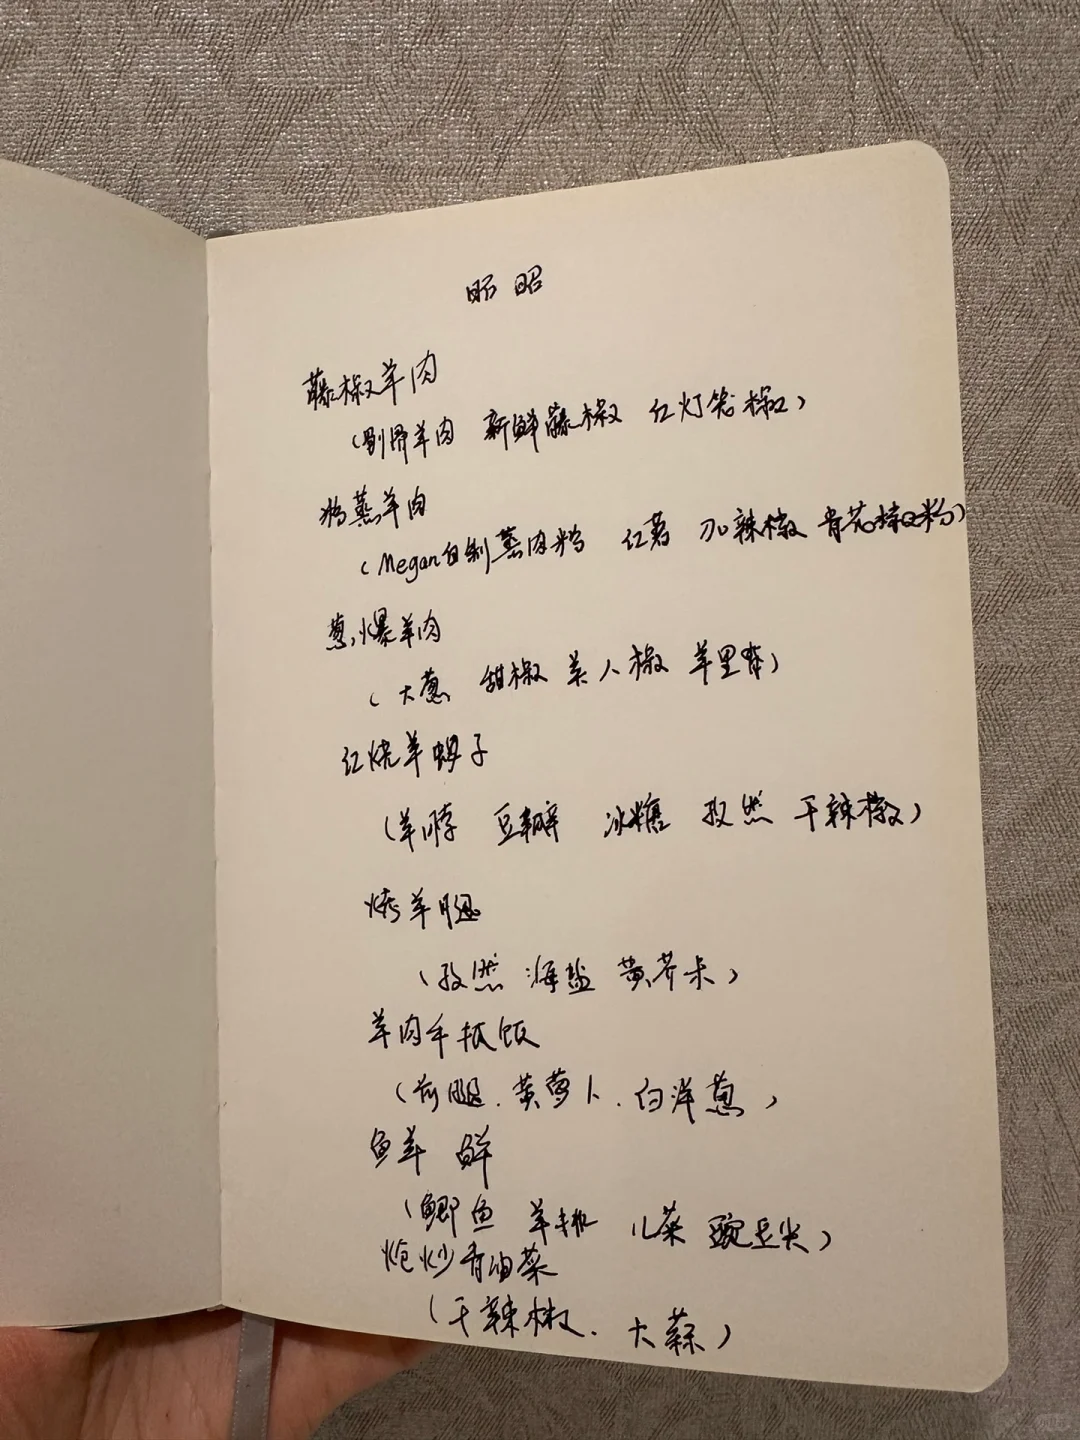 昭昭
藤椒羊肉
(剔骨羊肉 新鲜藤椒 红灯笼椒)
粉蒸羊肉
(Megan自制蒸肉粉 红薯 刀口辣椒 青花椒粉)
葱爆羊肉
(大葱 甜椒 美人椒 羊里脊)
红烧羊蝎子
(羊脖 豆瓣 冰糖 孜然 干辣椒)
烤羊腿
(孜然 海盐 黄芥末)
羊肉手抓饭
(前腿.黄萝卜.白洋葱)
鱼羊鲜
(鲫鱼 羊排 儿菜 豌豆尖)
炝炒青油菜
(干辣椒. 大蒜)